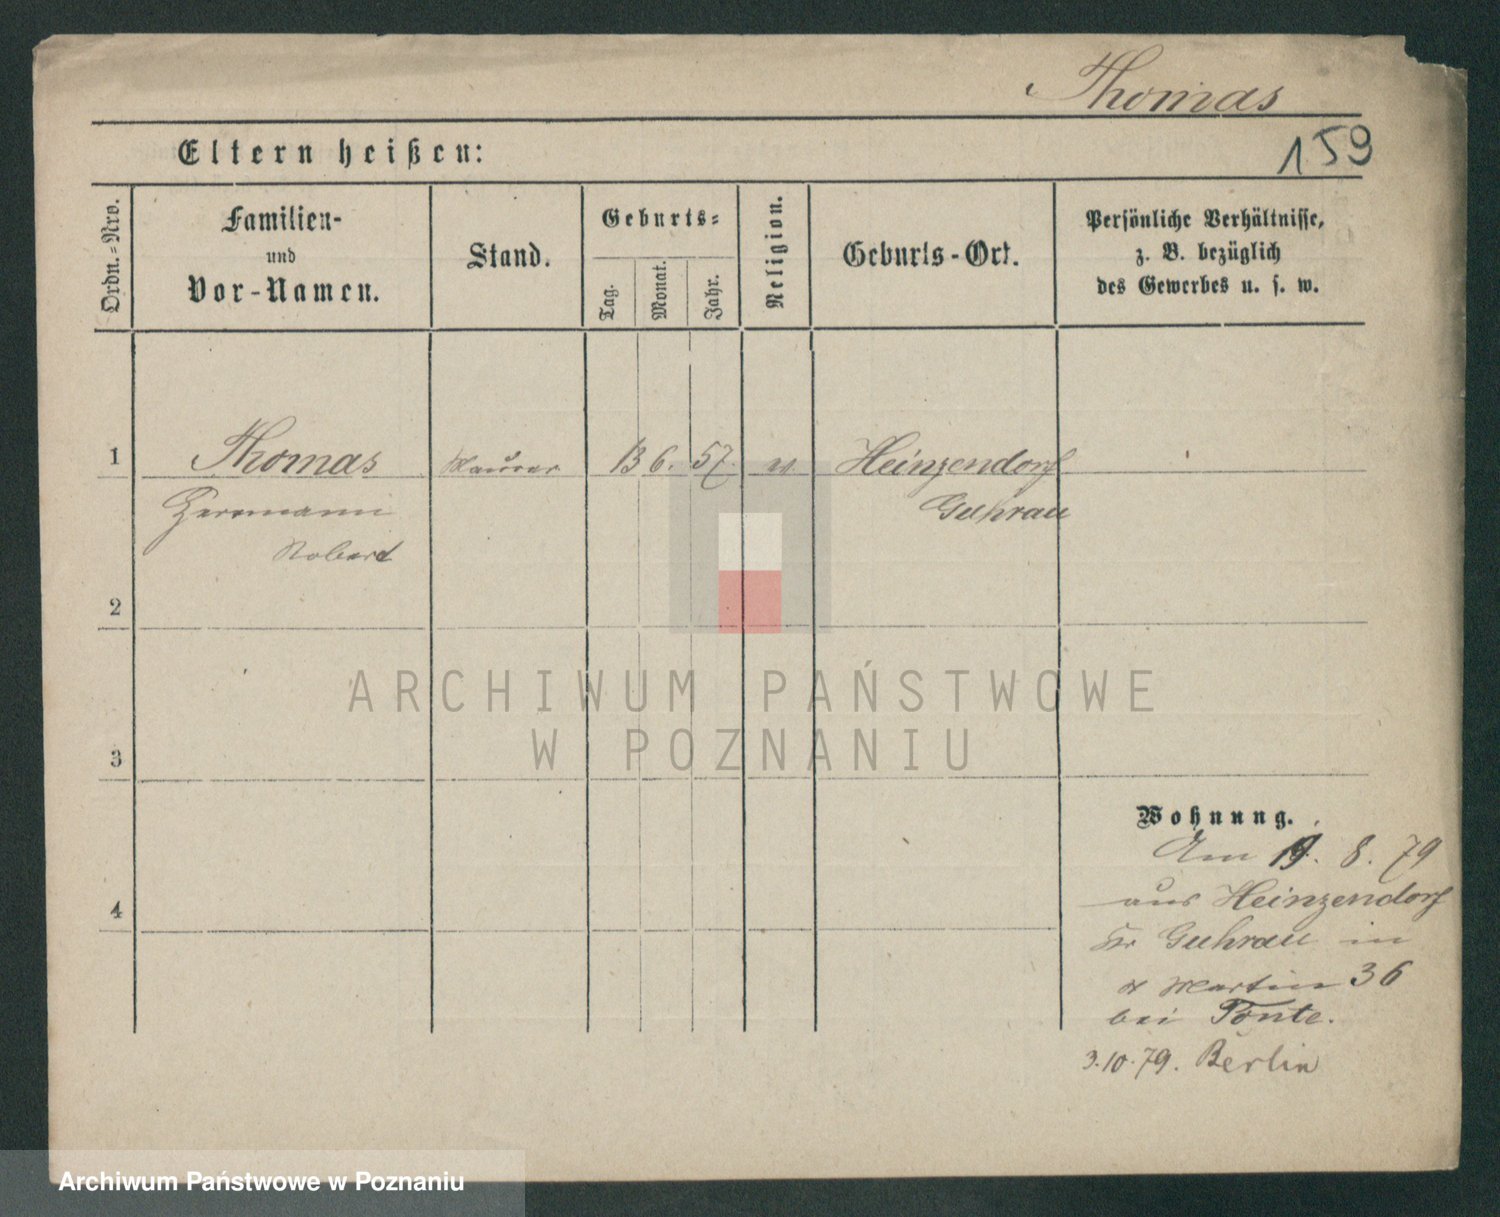 Thomas
159
Eltern heißen:
Ordn.=Nro.
Familien-
und
Vor-Namen.
Stand.
Geburts=
Tag.
Monat.
Jahr.
Religion.
Geburts-Ort.
Persönliche Verhältnisse,
z. B. bezüglich
des Gewerbes u. s. w.
1 Thomas Maurer 13 6. 57. Heinzendorf
Herrmann Guhrau
Robert
2
3
4
Wohnung.
Am 19. 8. 79
aus Heinzendorf
Kr Guhrau in
St Martin 36
bei Tonte.
3.10.79. Berlin
ARCHIWUM PAŃSTWOWE
W POZNANIU
Archiwum Państwowe w Poznaniu